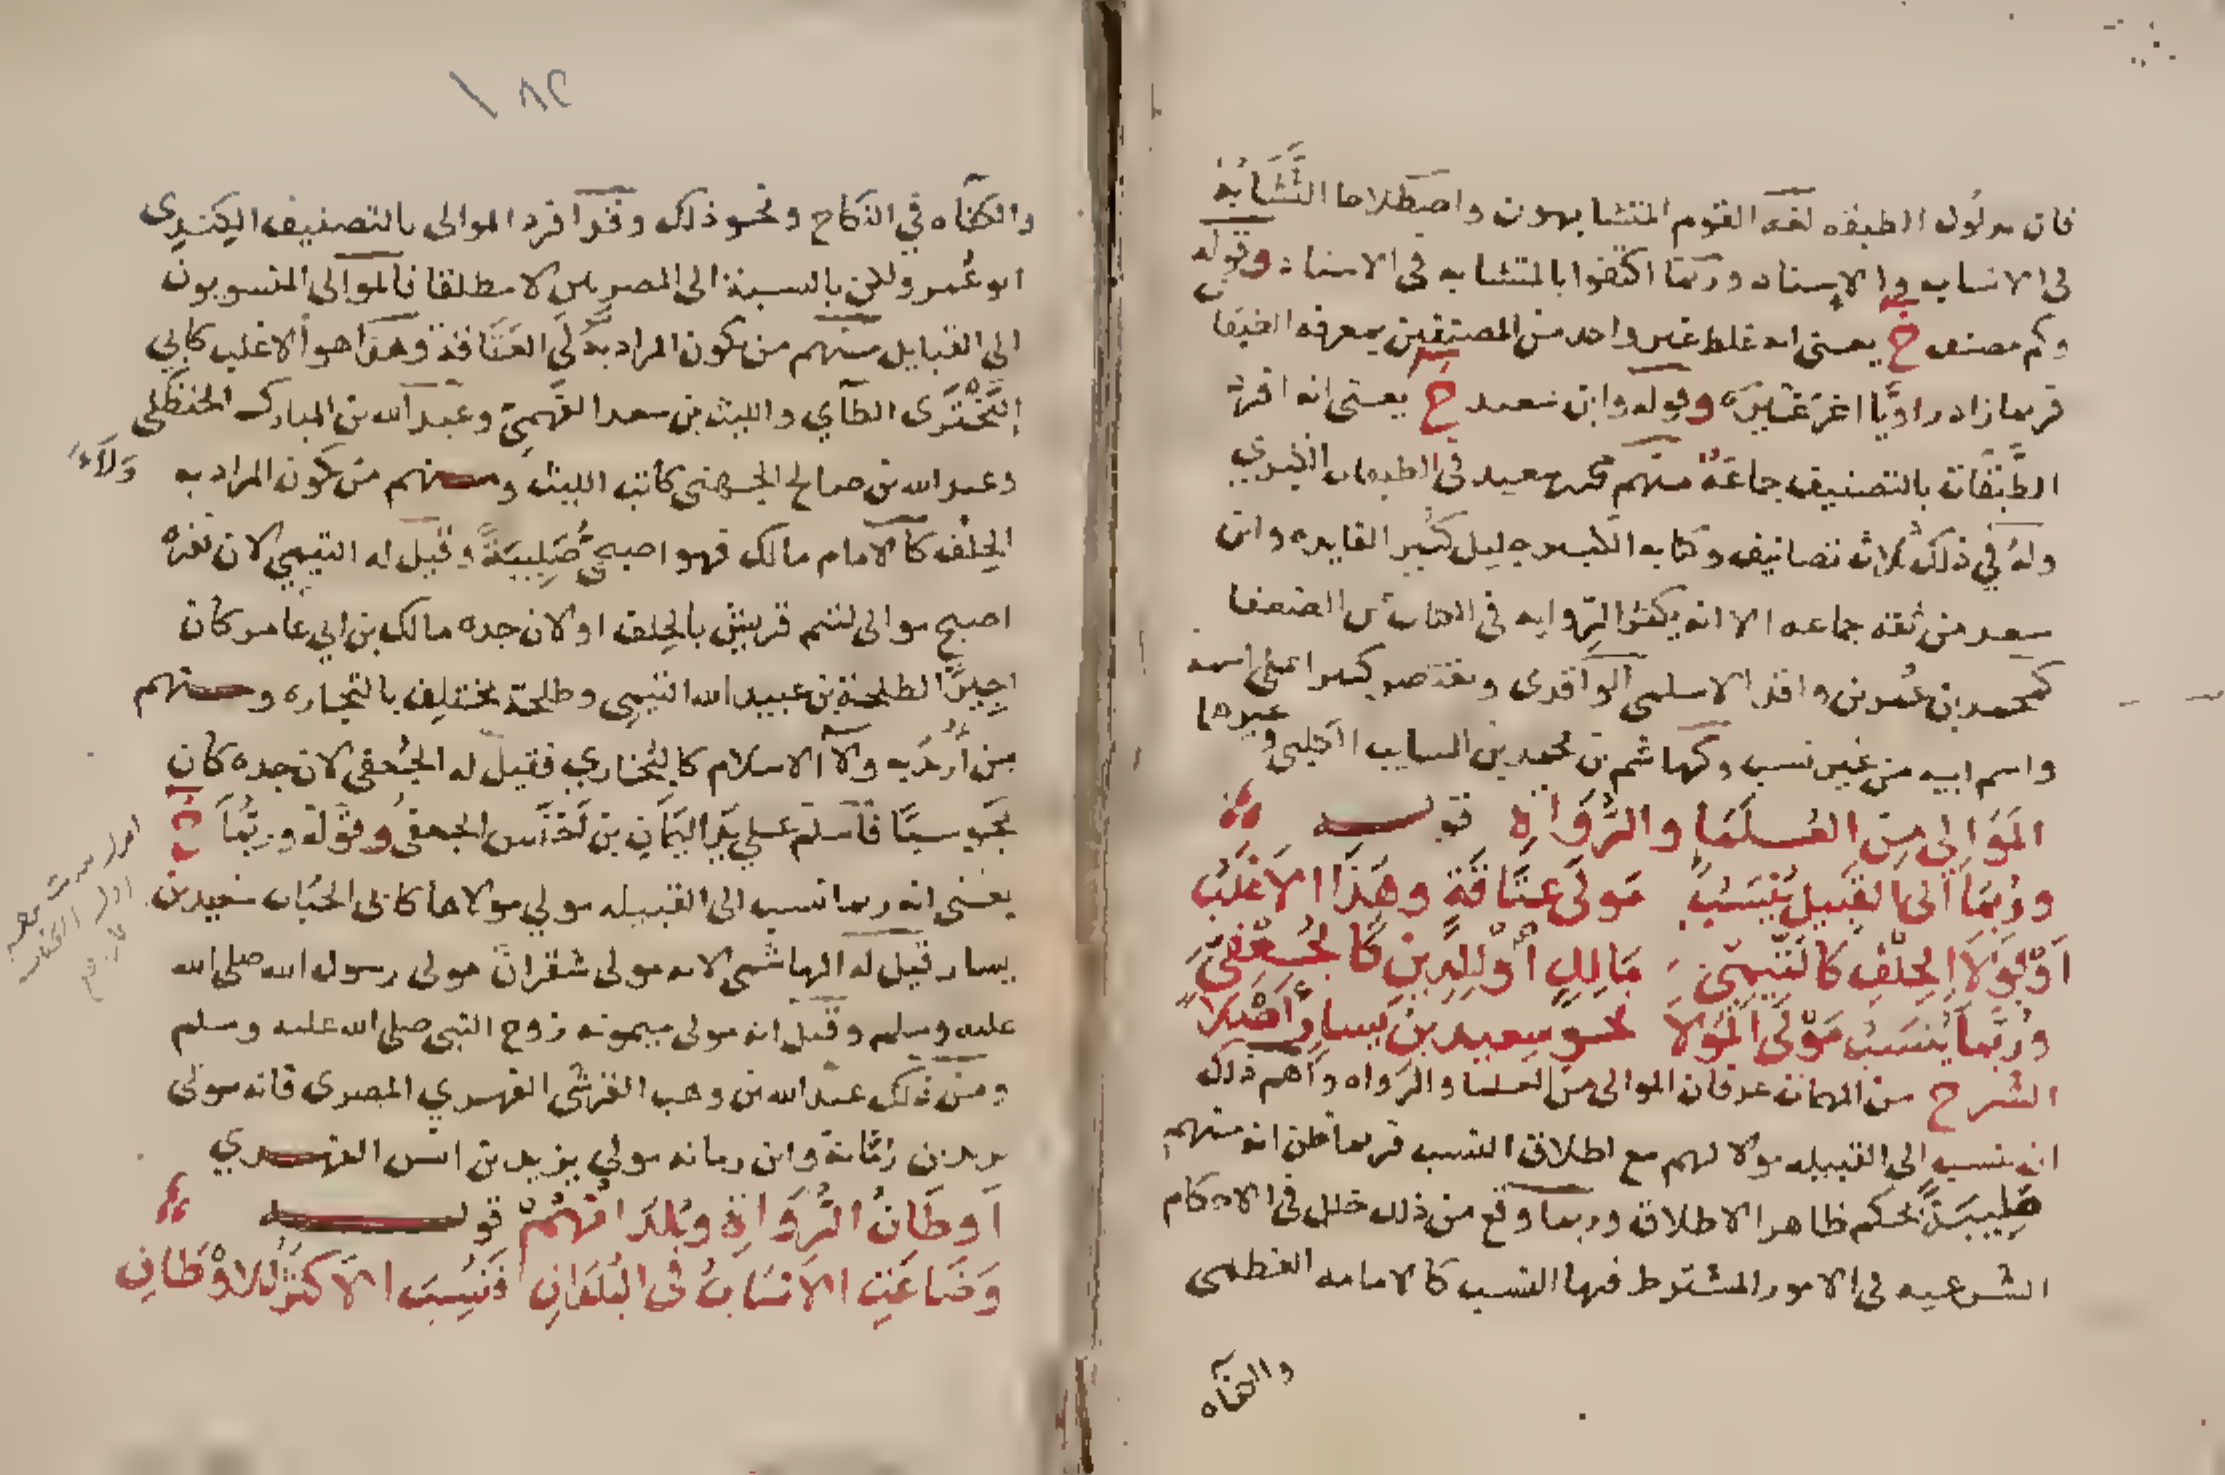 فان مدلول الطبقه لغه القوم المتشابهون واصطلاحا التَّشَابُه
في الانساب والاسناد وربما اكتفوا بالمتشابه في الاسناد وقوله
وكم مصنف خ يعني انه غلط غير واحد من المصنفين بمعرفه
فربما زاد راويًا اخر غيره وقوله وابن سعد خ يعني انه افرد
الطَّبَقَات بالتصنيف جماعةٌ منهم محمد بن سعد في الطبقات الكبري
وله في ذلك ثلاث تصانيف وكتابه الكبير جليل كثير الفايده وابن
سعد من ثقه جماعه الا انه يكثر الرِّوايه في الكتاب عن الضعفا
كمحمد بن عُمر بن واقد الاسلمي الواقدى ويقتصر كثيرا على اسمه
واسم ابيه من غير نسب وكهاشم بن محمد بن السايب الكلبي وغيرهما
المَوَالِي مِن العُلَمَا والرُّوَاةِ قولـــه
ورُبَّمَا الى القَبيل يُنْسَبُ مَولَى عَتَاقَةٍ وهَذَا الاَغْلَبُ
اَوْ لِوَلَاءِ الحِلْفِ كَالتَّيْمِيّ مَالِكٍ أوْ لِلدِّينِ كَالجُعْفِيّ
ورُبَّمَا يُنْسَبُ مَوْلَى المَوْلَا نحو سعيد بن يسارٍ أَصْلَا
الشرح من المهمات عرفان الموالى من العلما والرواه واهم ذلك
ان ينسب الى القبيله مولا لهم مع اطلاق النسب فربما ظن انه منهم
صَلِيبَةً بحكم ظاهر الاطلاق وربما وقع من ذلك خلل في الاحكام
الشرعيه في الامور المشترط فيها النسب كالامامه العظمى
والكفاه
١٨٢
والكفاه في النكاح ونحو ذلك وقد افرد الموالى بالتصنيف الكِندِى
ابو عُمر ولكن بالنسبة الى المصريين لا مطلقا فالموالى المنسوبون
الى القبايل منهم من يكون المراد به مَولَى العَتَاقة وهذا هو الاغلب كابي
البَخْتَرى الطآي والليث بن سعد الفَهمِيّ وعبد الله بن المبارك الحنظلى
وعبد الله بن صالح الجهني كاتب الليث ومنهم من يكون المراد به وَلَآءُ
الحِلْف كالامام مالك فهو اصبحيٌّ صَلِيبَةً وقيل له التيمي لان نفره
اصبح موالى لتيم قريش بالحِلف او لان جده مالك بن ابي عامر كان
اجيرًا لطلحة بن عبيد الله التيمى وطلحة يختلف بالتجاره ومنهم
من أُريد به ولآ الاسلام كالبُخاري فقيل له الجُعفي لان جده كان
مجوسيًا فاسلم على يد اليَمَان بن اَخنَس الجعفي وقوله وربَّمَا خ
يعني انه ربما نسب الى القبيله مولي مولاها كابى الحُبَاب سعيد بن
يسار قيل له الهاشمى لانه مولى شقران مولى رسول الله صلى الله
عليه وسلم وقيل انه مولى ميمونه زوج النبى صلى الله عليه وسلم
ومن ذلك عبد الله بن وهب القرشي الفهري المصرى فانه مولى
يزيد بن رُمَّانة وابن رمانه مولي يزيد بن انس الفهـري
اَوطَانُ الرُّوَاةِ وبُلدَانُهُمْ قولـــه
وَضَاعَتِ الاَنسَابُ في البُلدَانِ فَنُسِبَ الاَكثَرُ لِلاَوْطَانِ